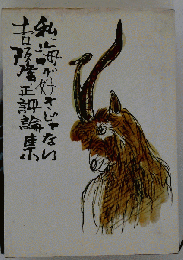 私、海が好きじゃない
吉阪隆正評論集